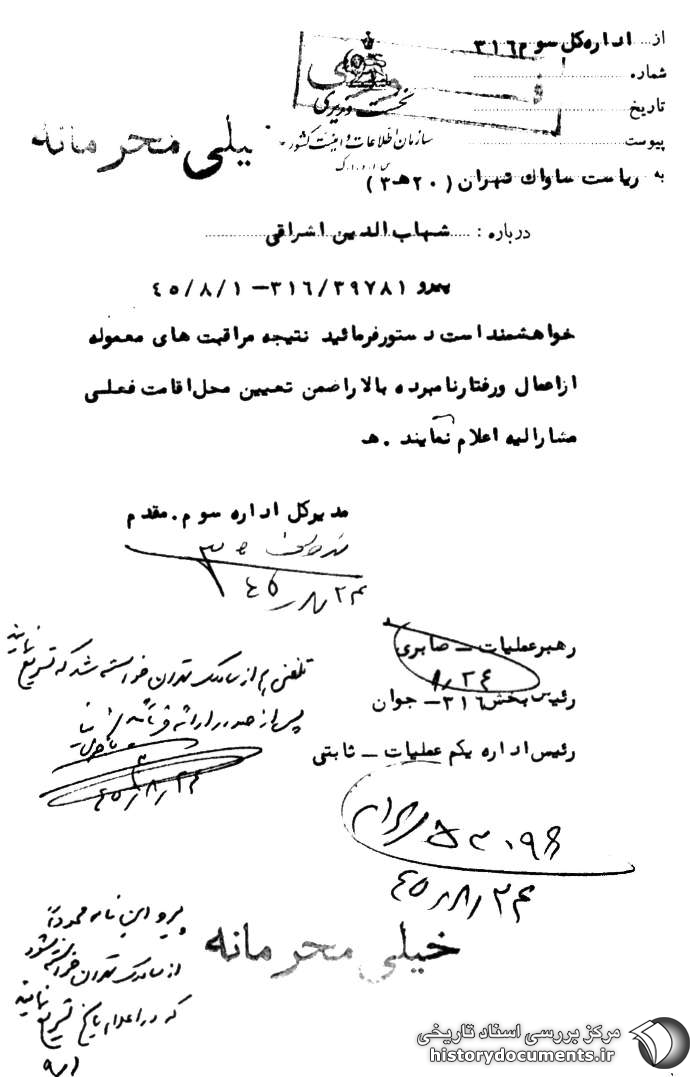 از اداره کل سوم ۳۱۶
شماره
تاریخ
پیوست
نخست وزیری
سازمان اطلاعات و امنیت کشور
س.ا.و.ا.ک
خیلی محرمانه
به ریاست ساواک تهران (۲۰ هـ ۳)
درباره : شهاب الدین اشراقی
پیرو ۳۱۶/۳۹۷۸۱ – ۴۵/۸/۱
خواهشمند است دستور فرمائید نتیجه مراقبت های معموله
از اعمال و رفتار نامبرده بالا را ضمن تعیین محل اقامت فعلی
مشارالیه اعلام نمایند . هـ
مدیرکل اداره سوم . مقدم
۴۵/۸/۲۴
رهبر عملیات – صابری
۸/۲۴
رئیس بخش ۳۱۶ – جوان
رئیس اداره یکم عملیات – ثابتی
تلفنی هم از ساواک تهران خواسته شد که تسریع نمایند
پس از صدور ارائه فرمائید
۴۵/۸/۲۴
۴۵/۸/۲۴
پیرو این نامه مجدداً
از ساواک تهران خواسته شود
که در اعلام پاسخ تسریع نمایند
خیلی محرمانه
مرکز بررسی اسناد تاریخی
historydocuments.ir